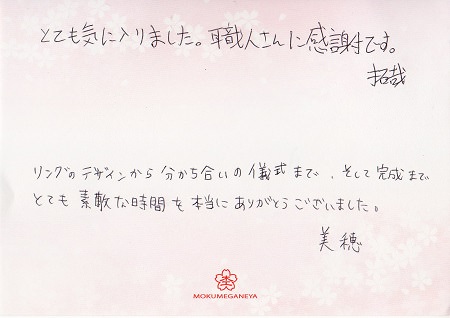 とても気に入りました。職人さんに感謝です。
拓哉
リングのデザインから分かち合いの儀式まで、そして完成まで
とても素敵な時間を本当にありがとうございました。
美穂
MOKUMEGANEYA